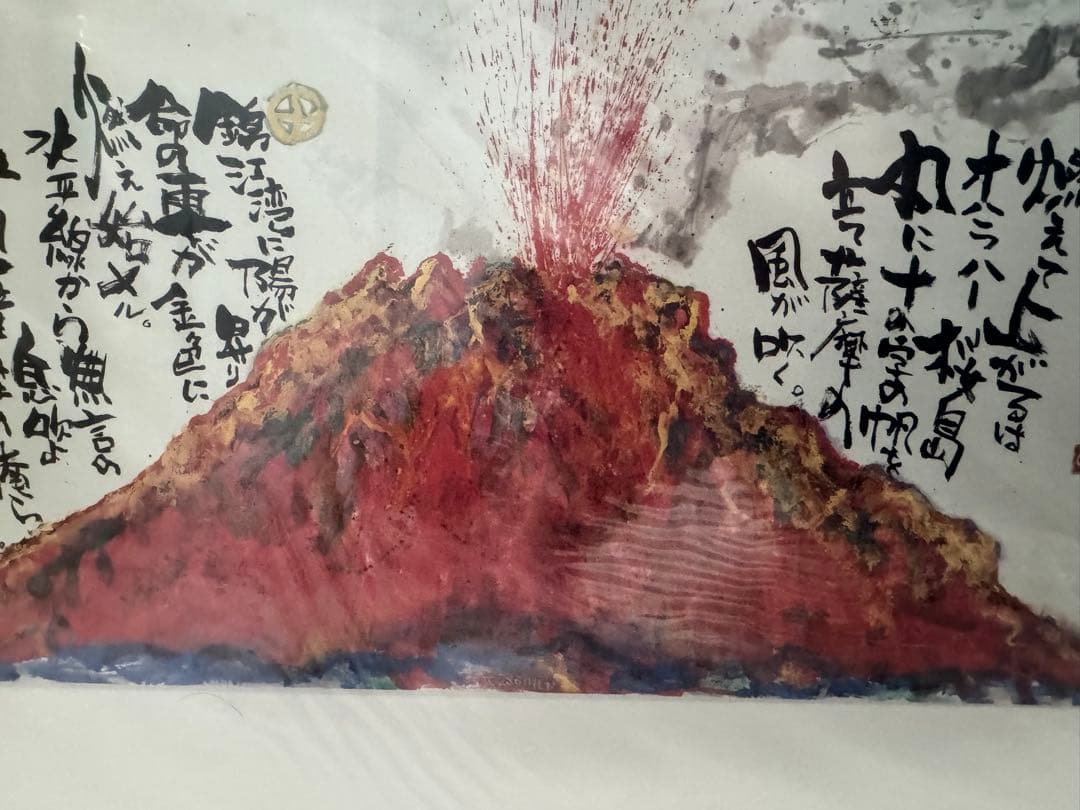 燃えて上がるは
オハラハー 桜島
丸に十の字の帆を
立てゝ薩摩の
風が吹く。
錦江湾に陽が昇り
命の東が金色に
燃え始メル。
水平線から無言の息吹